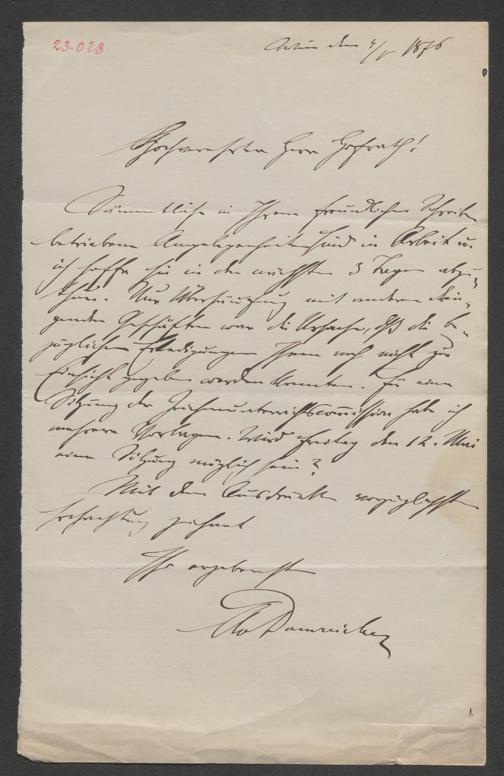 23.028
Wien den 4/5 1876
Hochverehrter Herr Hofrath!
Sämmtliche in Ihrem freundlichen Schreiben
betriebene Angelegenheiten sind in Arbeit u.
ich hoffe sie in den nächsten 3 Tagen abzu-
thun. Nur Überhäufung mit anderen drin-
genden Geschäften war die Ursache, daß die be-
züglichen Erledigungen Ihnen noch nicht zur
Einsicht gegeben werden konnten. Für eine
Sitzung der Zeichenunterrichtscommission habe ich
mehrere Vorlagen. Wird Freitag den 12. Mai
eine Sitzung möglich sein?
Mit dem Ausdrucke vorzüglichster
Hochachtung zeichnet
Ihr ergebenster